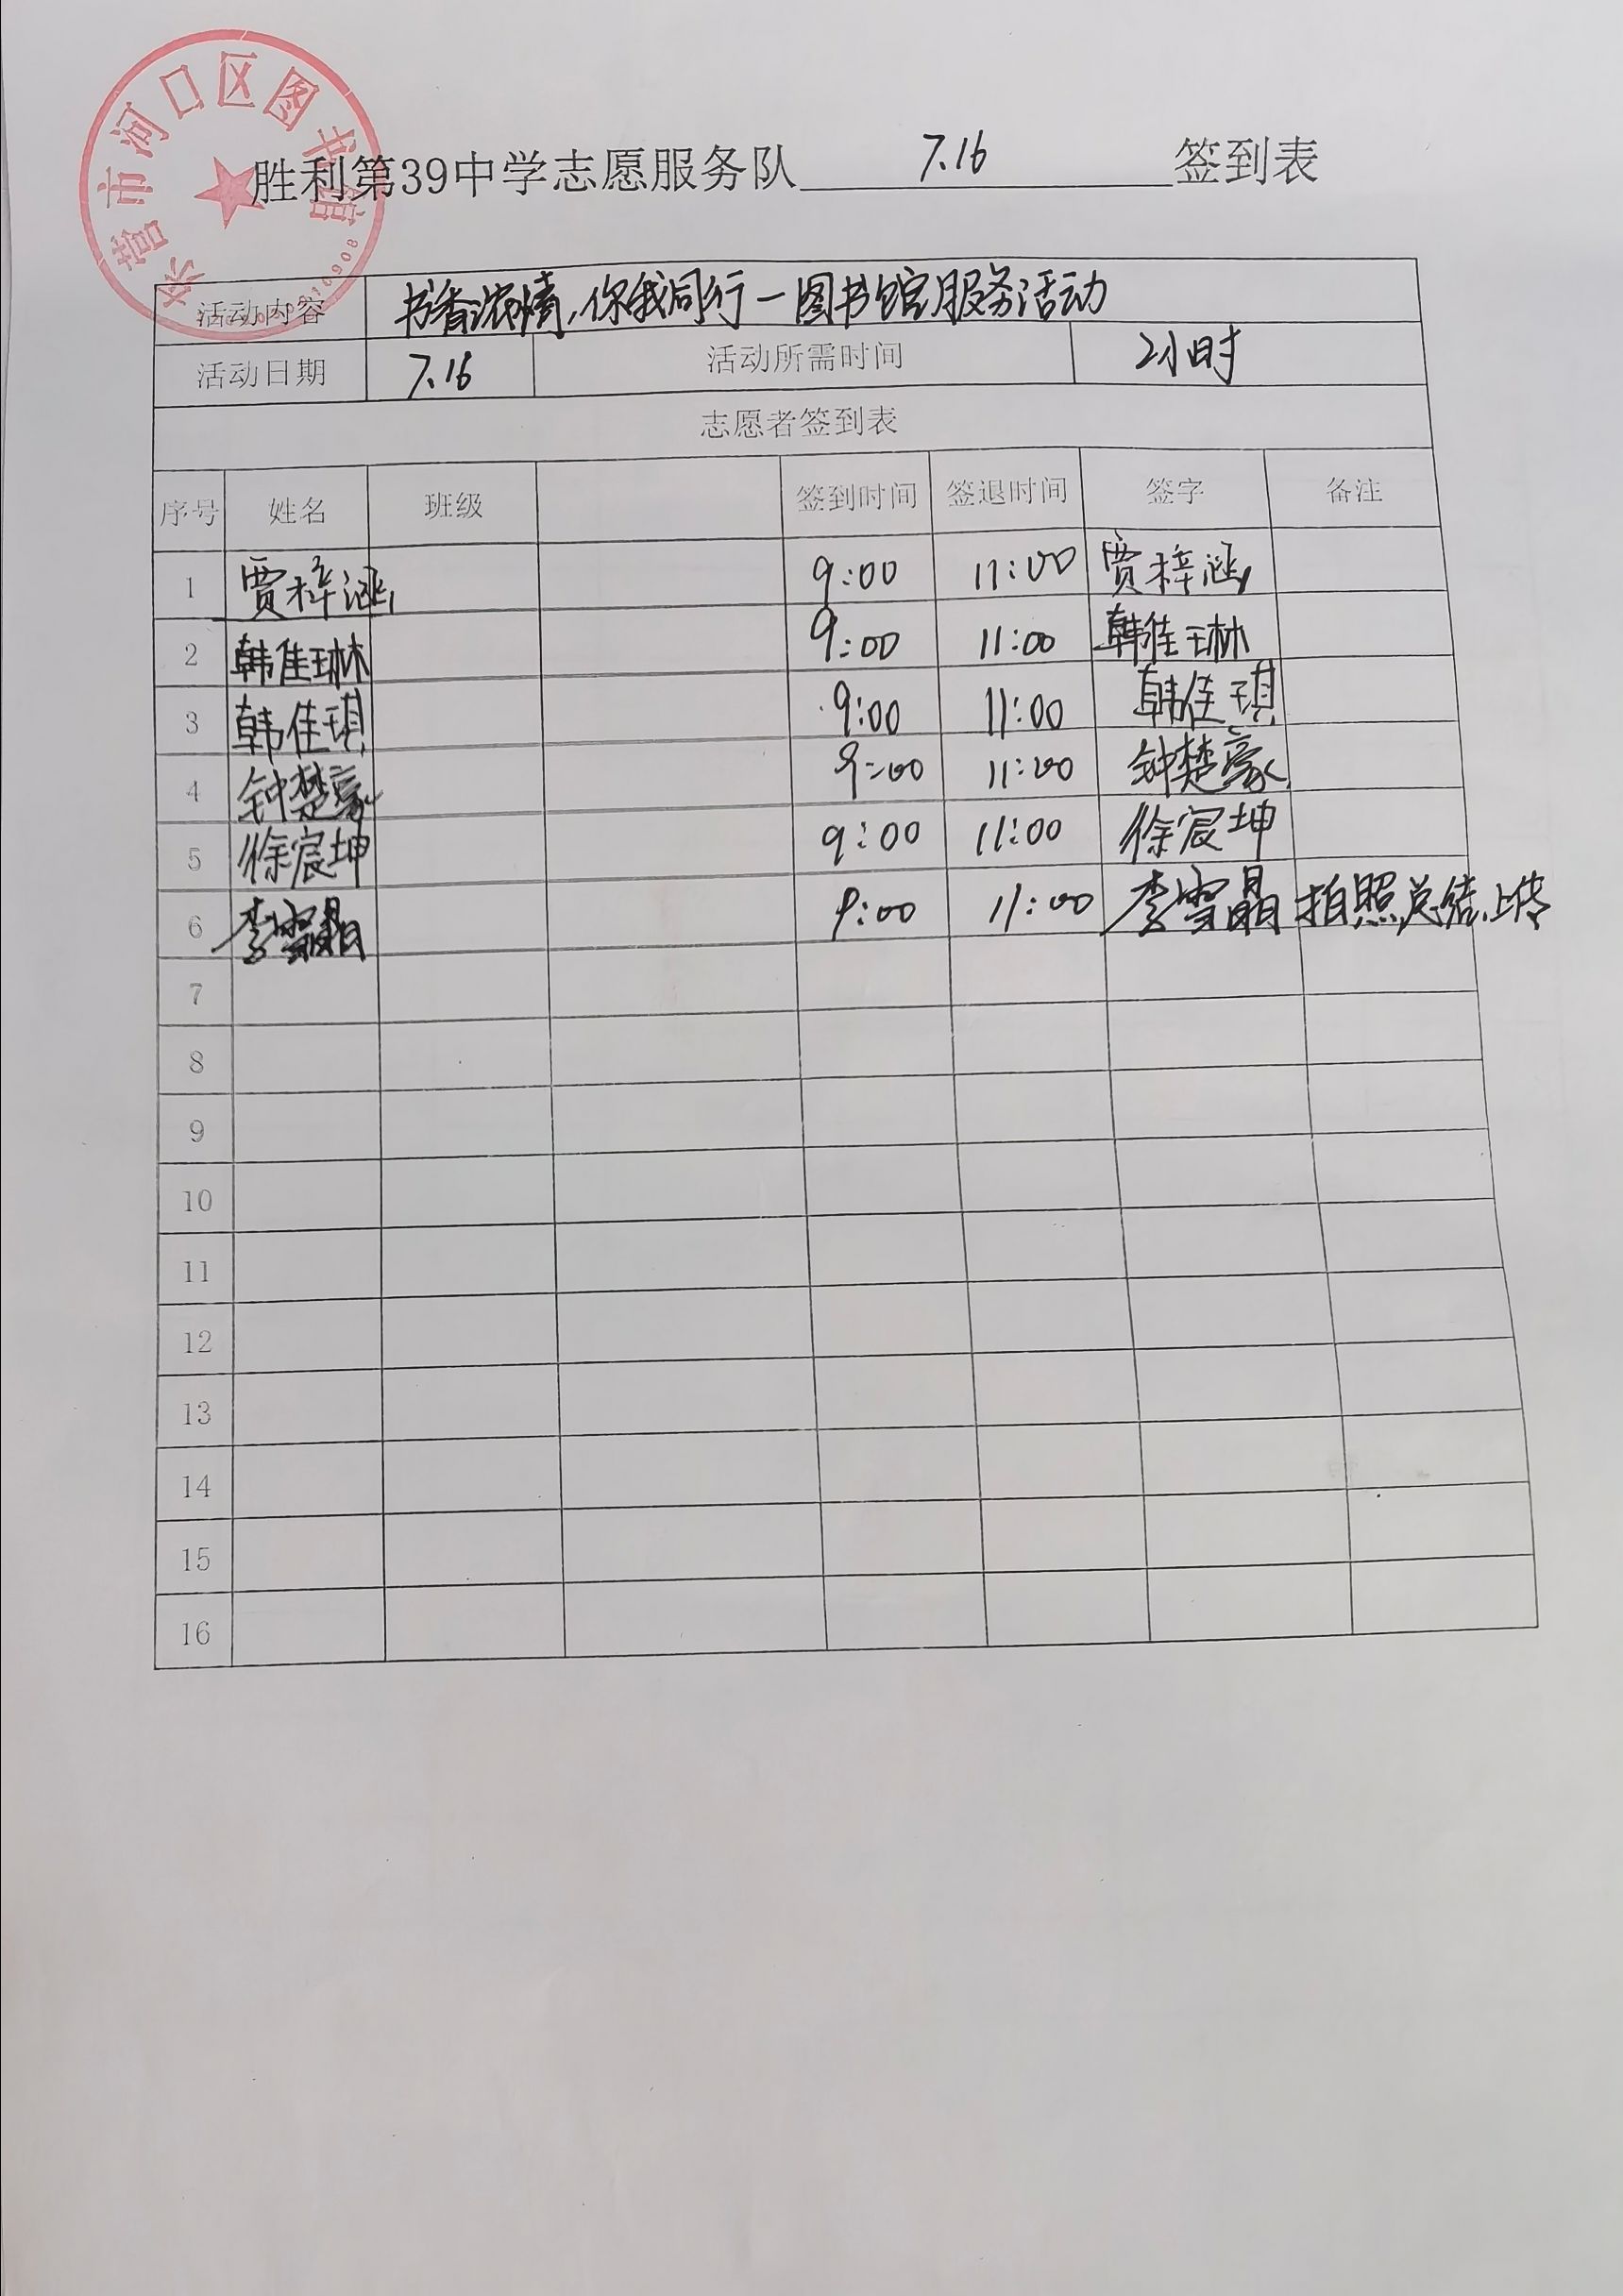 东营市河口区图书馆
胜利第39中学志愿服务队 7.16 签到表
活动内容 书香浓情,你我同行—图书馆服务活动
活动日期 7.16 活动所需时间 2小时
志愿者签到表
序号 姓名 班级 签到时间 签退时间 签字 备注
1 贾梓涵 9:00 11:00 贾梓涵
2 韩佳琳 9:00 11:00 韩佳琳
3 韩佳琪 9:00 11:00 韩佳琪
4 钟楚豪 9:00 11:00 钟楚豪
5 徐宸坤 9:00 11:00 徐宸坤
6 李雪晶 9:00 11:00 李雪晶 拍照,总结,上传
7
8
9
10
11
12
13
14
15
16